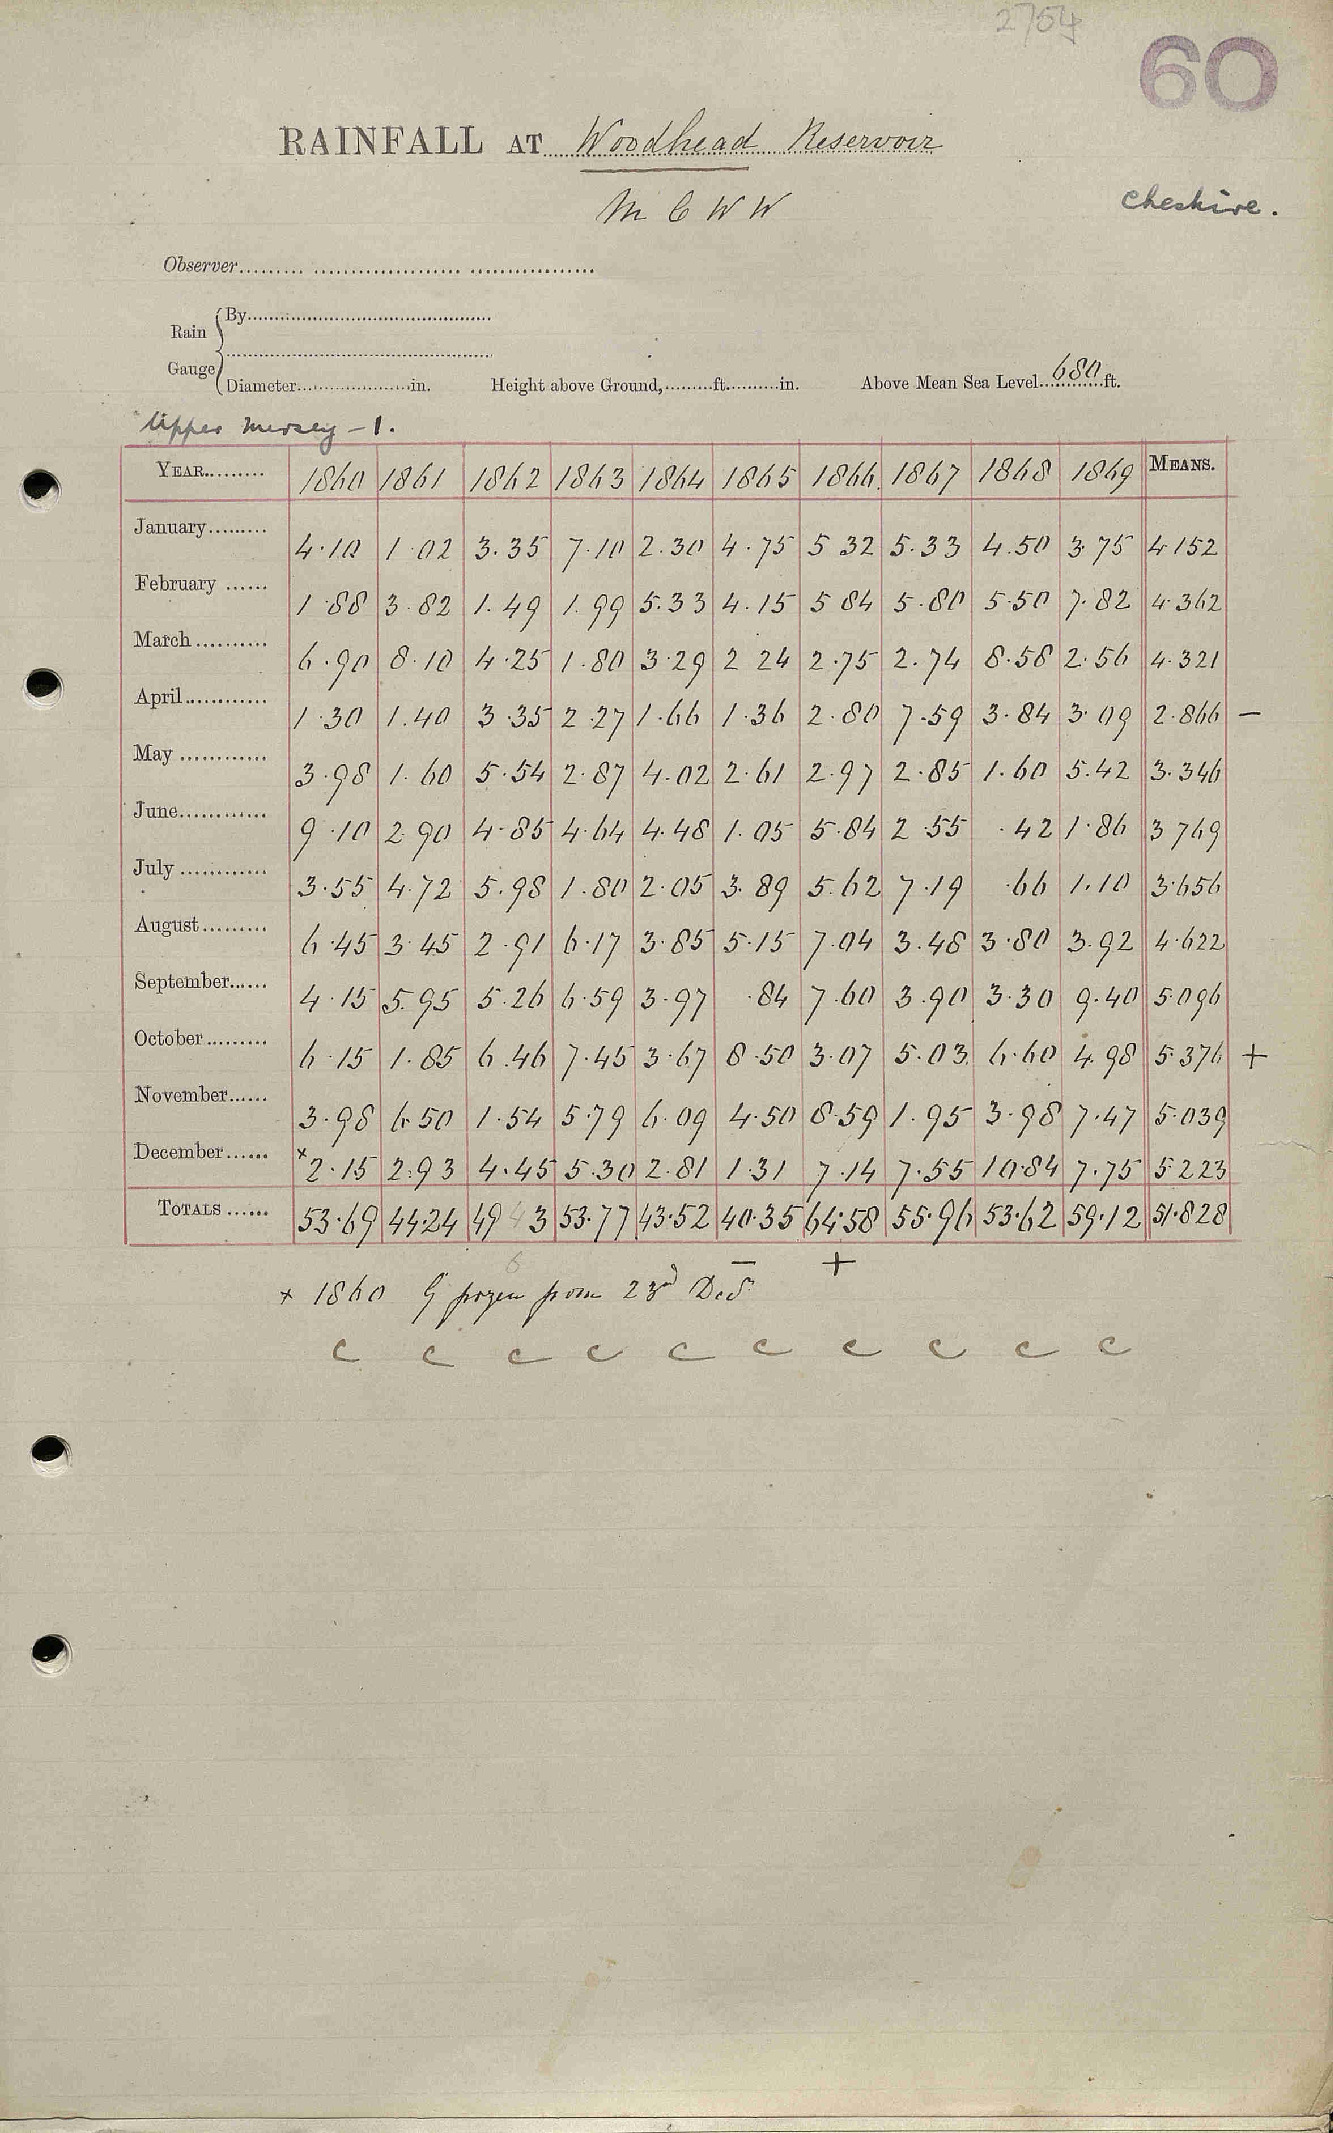 2754
60
RAINFALL AT Woodhead Reservoir
M C W W
Cheshire.
Observer
Rain Gauge { By
Diameter in. Height above Ground, ft. in. Above Mean Sea Level 680 ft.
Upper Mersey - 1.
YEAR 1860 1861 1862 1863 1864 1865 1866 1867 1868 1869 MEANS.
January 4.10 1.02 3.35 7.10 2.30 4.75 5.32 5.33 4.50 3.75 4.152
February 1.88 3.82 1.49 1.99 5.33 4.15 5.84 5.80 5.50 7.82 4.362
March 6.90 8.10 4.25 1.80 3.29 2.24 2.75 2.74 8.58 2.56 4.321
April 1.30 1.40 3.35 2.27 1.66 1.36 2.80 7.59 3.84 3.09 2.866 -
May 3.98 1.60 5.54 2.87 4.02 2.61 2.97 2.85 1.60 5.42 3.346
June 9.10 2.90 4.85 4.64 4.48 1.05 5.84 2.55 .42 1.86 3.769
July 3.55 4.72 5.98 1.80 2.05 3.89 5.62 7.19 .66 1.10 3.656
August 6.45 3.45 2.91 6.17 3.85 5.15 7.04 3.48 3.80 3.92 4.622
September 4.15 5.95 5.26 6.59 3.97 .84 7.60 3.90 3.30 9.40 5.096
October 6.15 1.85 6.46 7.45 3.67 8.50 3.07 5.03 6.60 4.98 5.376 +
November 3.98 6.50 1.54 5.79 6.09 4.50 8.59 1.95 3.98 7.47 5.039
December x2.15 2.93 4.45 5.30 2.81 1.31 7.14 7.55 10.84 7.75 5.223
TOTALS 53.69 44.24 49 43 53.77 43.52 40.35 64.58 55.96 53.62 59.12 51.828
6 - +
x 1860 G frozen from 23rd Dec
c c c c c c c c c c